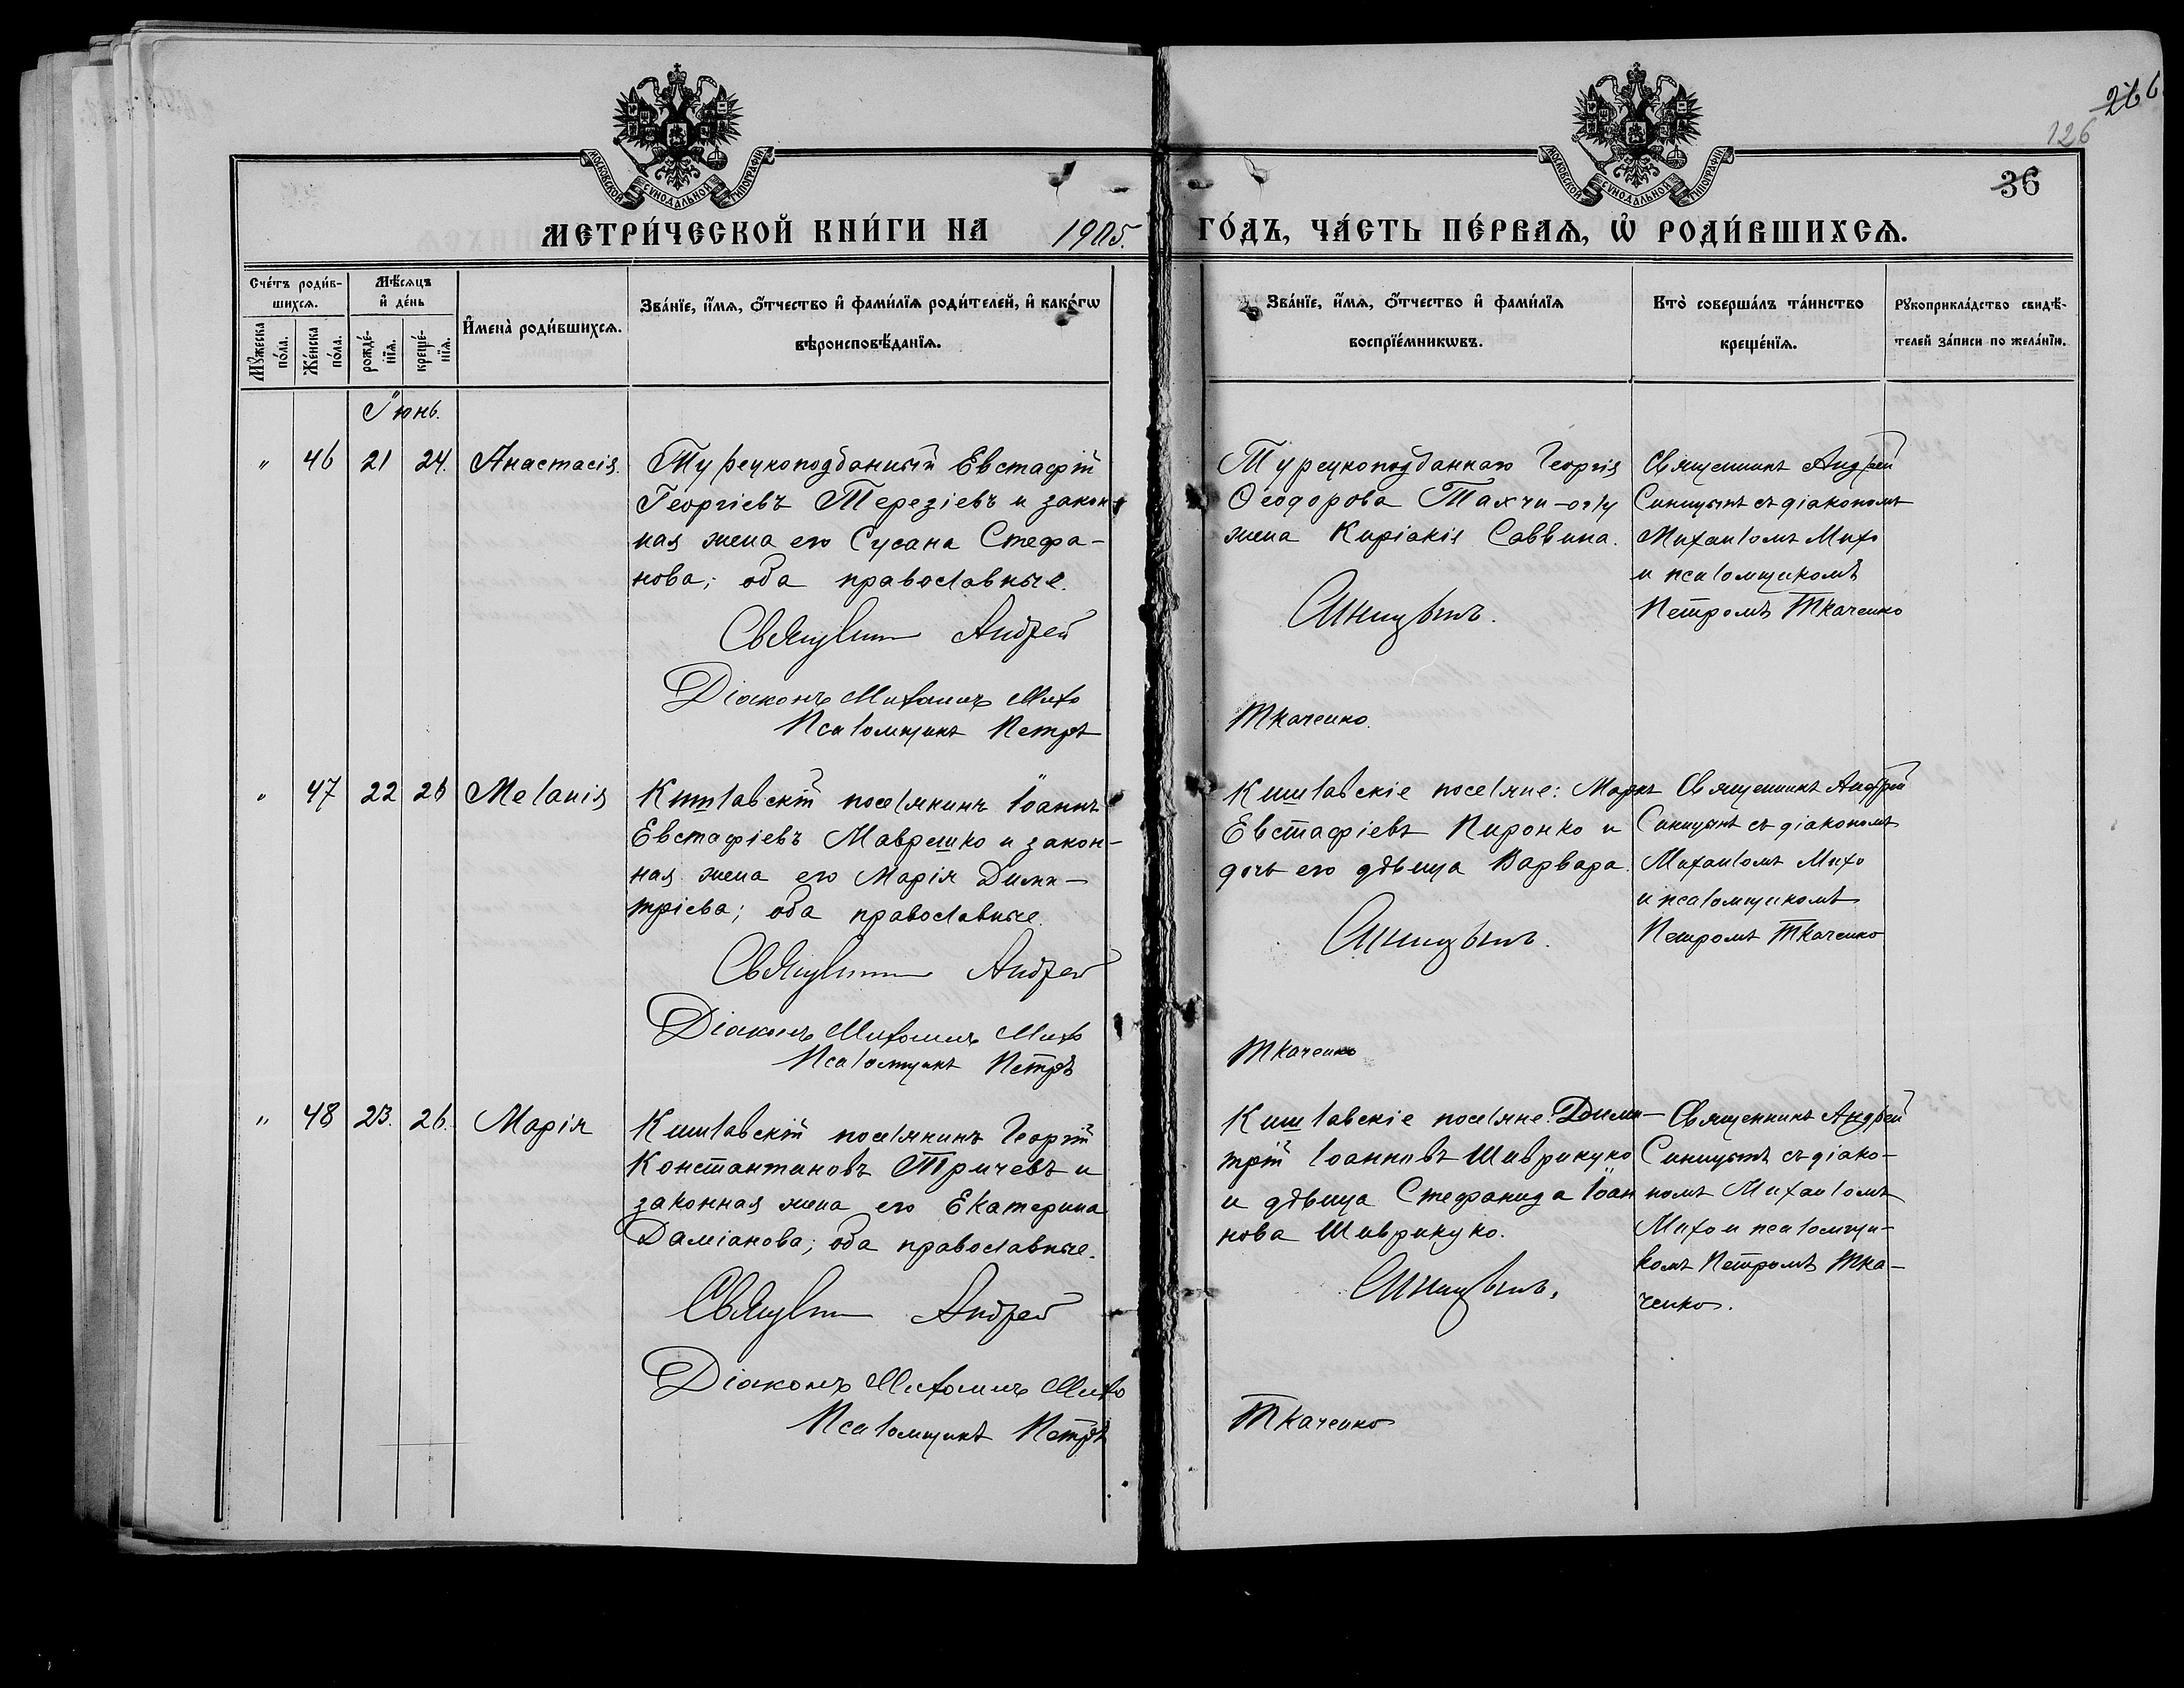 266
126
36
МОСКОВСКОЙ СѴНОДАЛЬНОЙ ТИПОГРАФІИ
МОСКОВСКОЙ СѴНОДАЛЬНОЙ ТИПОГРАФІИ
МЕТРИ́ЧЕСКОЙ КНИ́ГИ НА 1905. ГО́ДЪ, ЧА́СТЬ ПЕ́РВАѦ, Ѡ҆ РОДИ́ВШИХСѦ.
Сче́тъ роди́в-
шихсѧ.
Мꙋ́жеска
по́ла.
Же́нска
по́ла.
Мѣ́сѧцъ
и҆ де́нь
рожде́-
нїѧ.
креще́-
нїѧ.
И҆мена̀ роди́вшихсѧ.
Зва́нїе, и҆́мѧ, ѻ҆́тчество и҆ фами́лїѧ роди́телей, и҆ како́гѡ
вѣроисповѣ́данїѧ.
Зва́нїе, и҆́мѧ, ѻ҆́тчество и҆ фами́лїѧ
воспрїе́мникѡвъ.
Кто̀ соверша́лъ та́инство
креще́нїѧ.
Рꙋкоприкла́дство свидѣ́-
телей за́писи по жела́нїю.
Іюнь.
" 46 21 24. Анастасія.
Турецкоподданный Евстафій
Георгіевъ Терезіевъ и закон-
ная жена его Сусана Стефа-
нова; оба православные.
Священник Андрей
Діаконъ Михаилъ Михо
Псаломщикъ Петръ
Турецкоподданнаго Георгія
Ѳеодорова Тахчи-оглу
жена Киріакія Саввина.
Синицынъ.
Ткаченко.
Священникъ Андрей
Синицынъ съ діакономъ
Михаиломъ Михо
и псаломщикомъ
Петромъ Ткаченко
" 47 22 26 Меланія
Кишлавскій поселянинъ Іоаннъ
Евстафіевъ Маврешко и закон-
ная жена его Марія Дими-
тріева; оба православные.
Священник Андрей
Діаконъ Михаилъ Михо
Псаломщикъ Петръ
Кишлавскіе поселяне: Маркъ
Евстафіевъ Пиронко и
дочь его дѣвица Варвара.
Синицынъ.
Ткаченко
Священникъ Андрей
Синицынъ съ діакономъ
Михаиломъ Михо
и псаломщикомъ
Петромъ Ткаченко
" 48 23. 26. Марія
Кишлавскій поселянинъ Георгій
Константиновъ Тричевъ и
законная жена его Екатерина
Даміанова; оба православные.
Священник Андрей
Діаконъ Михаилъ Михо
Псаломщикъ Петръ
Кишлавскіе поселяне: Дими-
трій Іоанновъ Шиврикуко
и дѣвица Стефанида Іоан
нова Шиврикуко.
Синицынъ.
Ткаченко
Священникъ Андрей
Синицынъ съ діако-
номъ Михаиломъ
Михо и псаломщи-
комъ Петромъ Тка-
ченко.